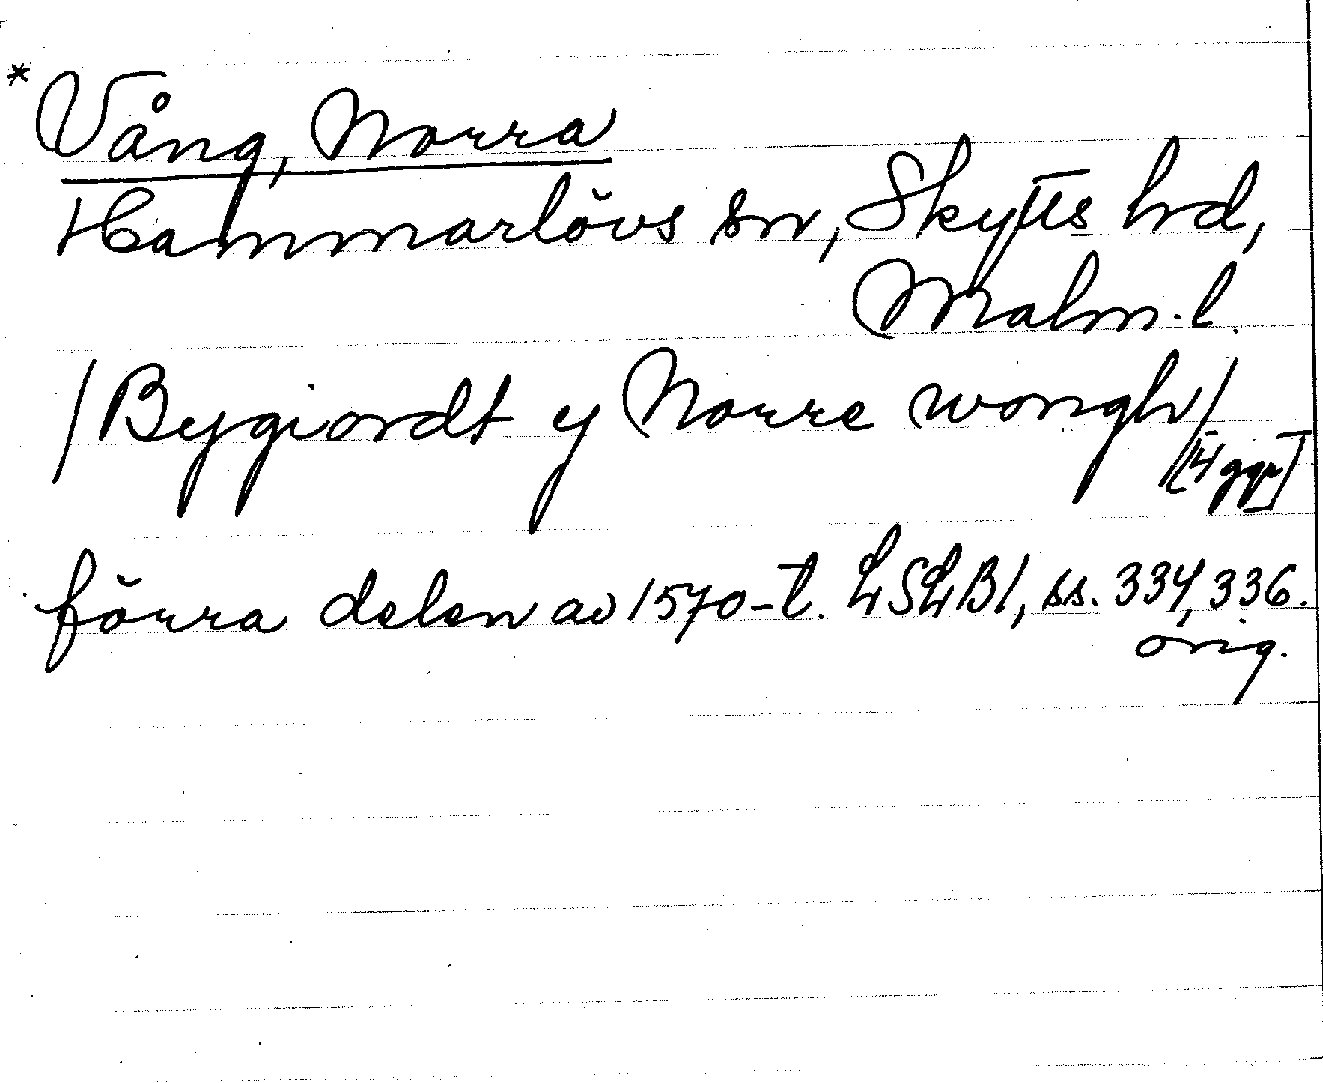 * Vång, Norra
Hammarlövs sn, Skytts hd,
Malm.l.
/Bygiordt y Norre wongh/
[4 ggr]
förra delen av 1570-t. LSLB1, ss. 334, 336.
orig.